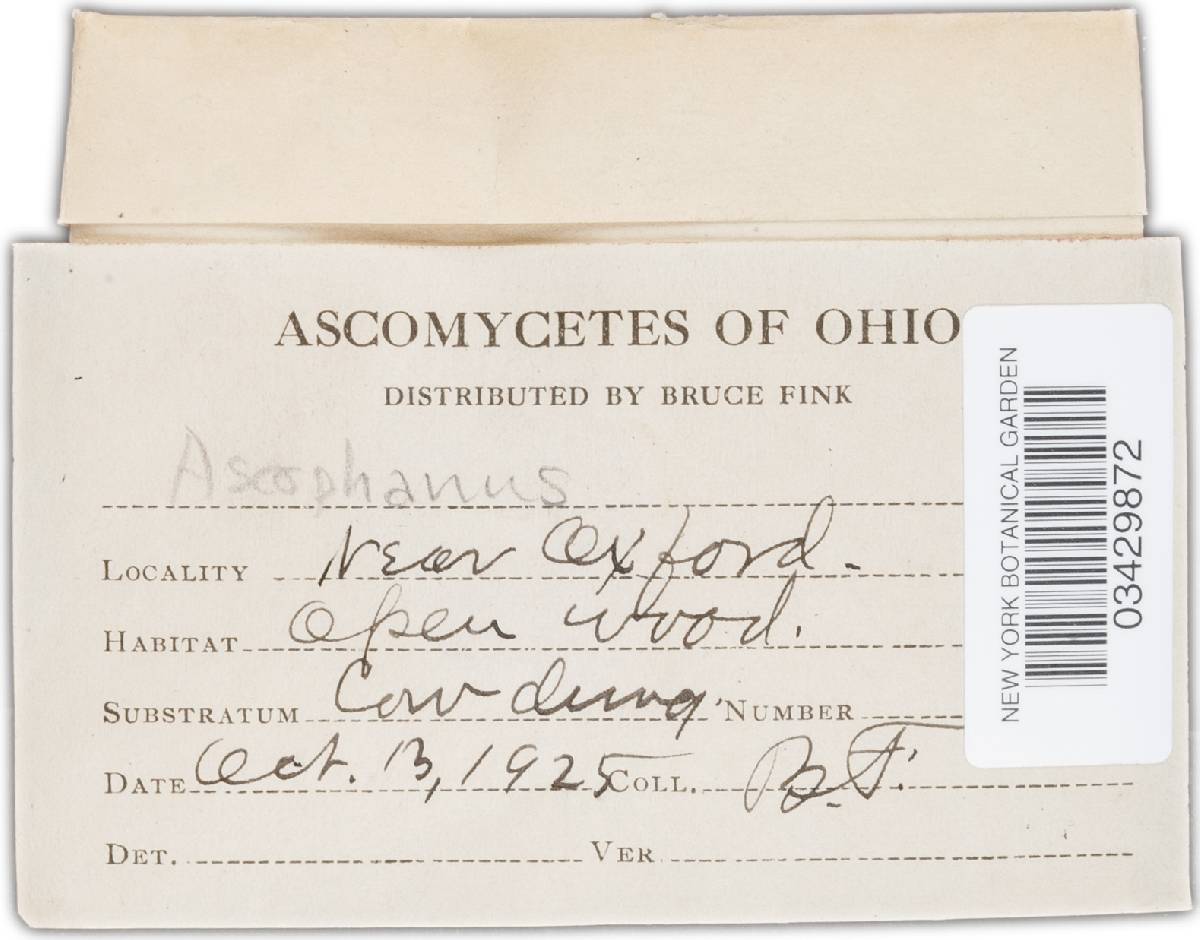 ASCOMYCETES OF OHIO
DISTRIBUTED BY BRUCE FINK
Ascophanus
LOCALITY Near Oxford.
HABITAT Open wood.
SUBSTRATUM Cow dung. NUMBER
DATE Oct. 13, 1925 COLL. B. F.
DET. VER
NEW YORK BOTANICAL GARDEN
03429872